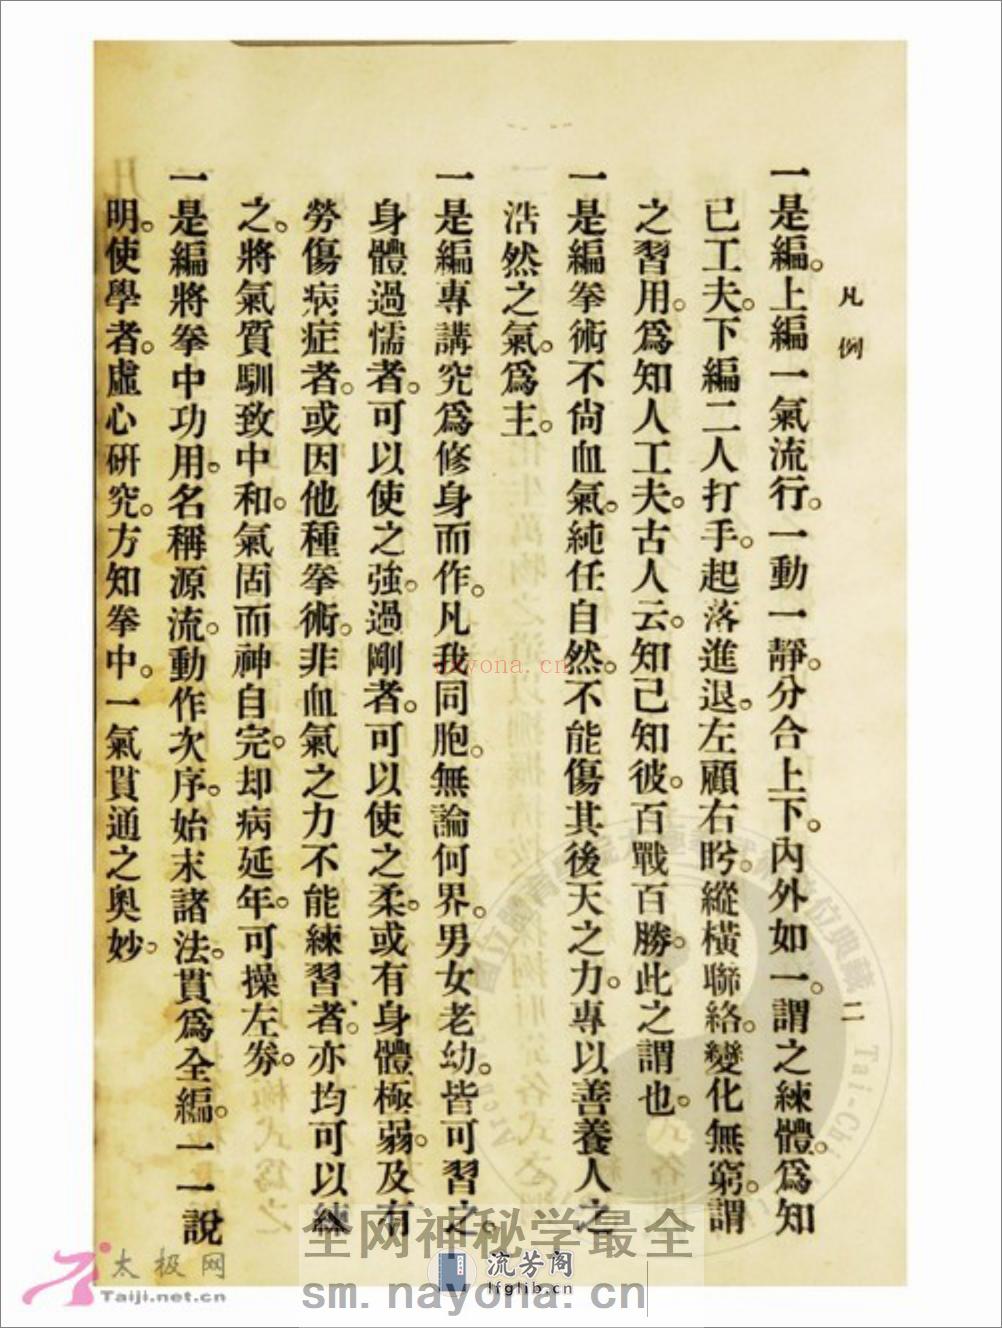 凡例
二
一是編。上編一氣流行。一動一靜。分合上下。內外如一。謂之練體。爲知
已工夫。下編二人打手。起落進退。左顧右盻。縱橫聯絡。變化無窮。謂
之習用。爲知人工夫。古人云。知己知彼。百戰百勝。此之謂也。
一是編拳術不尙血氣。純任自然。不能傷其後天之力。專以善養人之
浩然之氣。爲主。
一是編專講究爲修身而作。凡我同胞。無論何界。男女老幼。皆可習之。
身體過懦者。可以使之強。過剛者。可以使之柔。或有身體極弱。及有
勞傷病症者。或因他種拳術。非血氣之力不能練習者。亦均可以練
之。將氣質馴致中和。氣固而神自完。却病延年。可操左劵。
一是編將拳中功用。名稱源流。動作次序。始末諸法。貫爲全編。一一說
明。使學者。虛心研究。方知拳中。一氣貫通之奥妙。
nayona.cn
Tai-Chi
全网神秘学最全
流芳阁
lfglib.cn
sm.nayona.cn
太极网
Taiji.net.cn